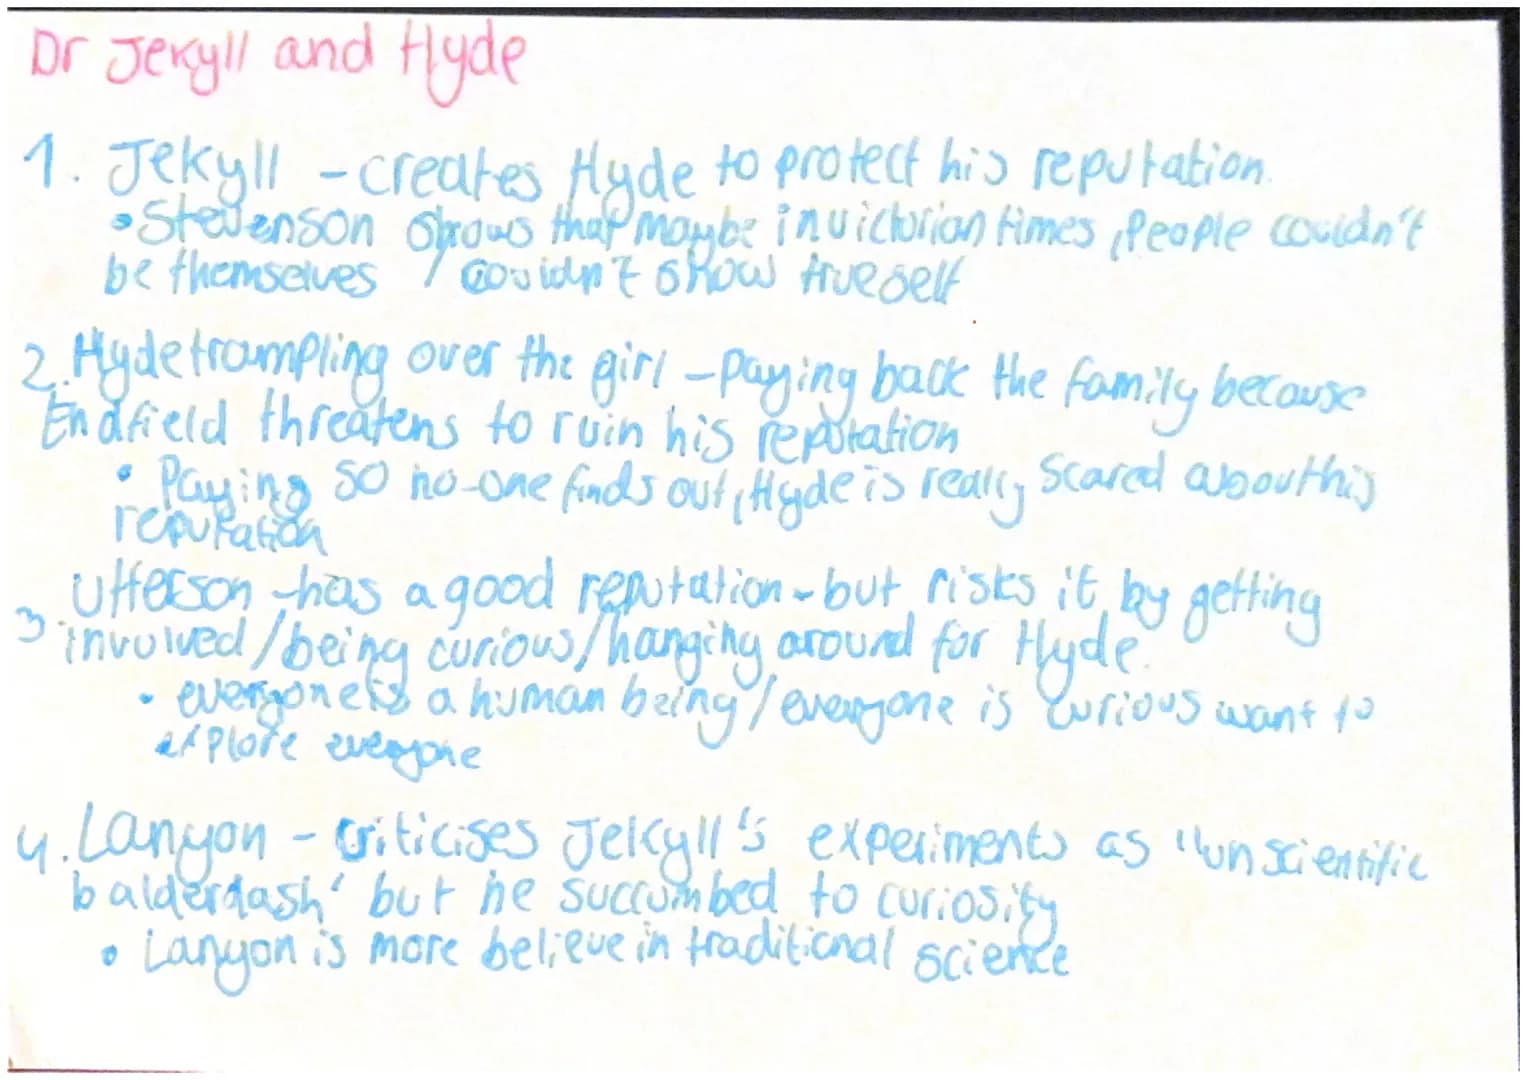 Dr Jekyll and Hyde
1. Jekyll - creates Hyde to protect his reputation.
• Stevenson shows that maybe in victorian times, people couldn't
be themselves / couldn't show true self
2. Hyde trampling over the girl - paying back the family because
Endfield threatens to ruin his reputation
• Paying so no-one finds out, Hyde is really scared about his
reputation
Utterson - has a good reputation - but risks it by getting
3. involved/being curious/hanging around for Hyde.
• everyone is a human being / everyone is curious want to
explore everyone
4. Lanyon - criticises Jekyll's experiments as "unscientific
balderdash' but he succumbed to curiosity
• Lanyon is more believe in traditional science